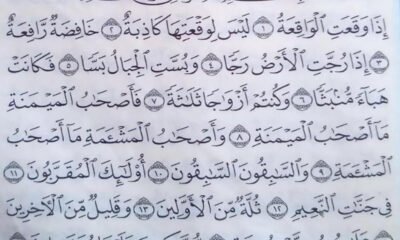 إِذَا وَقَعَتِ ٱلْوَاقِعَةُ ۝١ لَيْسَ لِوَقْعَتِهَا كَاذِبَةٌ ۝٢ خَافِضَةٌ رَّافِعَةٌ
۝٣ إِذَا رُجَّتِ ٱلْأَرْضُ رَجًّا ۝٤ وَبُسَّتِ ٱلْجِبَالُ بَسًّا ۝٥ فَكَانَتْ
هَبَآءً مُّنۢبَثًّا ۝٦ وَكُنتُمْ أَزْوَٰجًا ثَلَٰثَةً ۝٧ فَأَصْحَٰبُ ٱلْمَيْمَنَةِ
مَآ أَصْحَٰبُ ٱلْمَيْمَنَةِ ۝٨ وَأَصْحَٰبُ ٱلْمَشْـَٔمَةِ مَآ أَصْحَٰبُ
ٱلْمَشْـَٔمَةِ ۝٩ وَٱلسَّٰبِقُونَ ٱلسَّٰبِقُونَ ۝١٠ أُو۟لَٰٓئِكَ ٱلْمُقَرَّبُونَ ۝١١
فِى جَنَّٰتِ ٱلنَّعِيمِ ۝١٢ ثُلَّةٌ مِّنَ ٱلْأَوَّلِينَ ۝١٣ وَقَلِيلٌ مِّنَ ٱلْءَاخِرِينَ